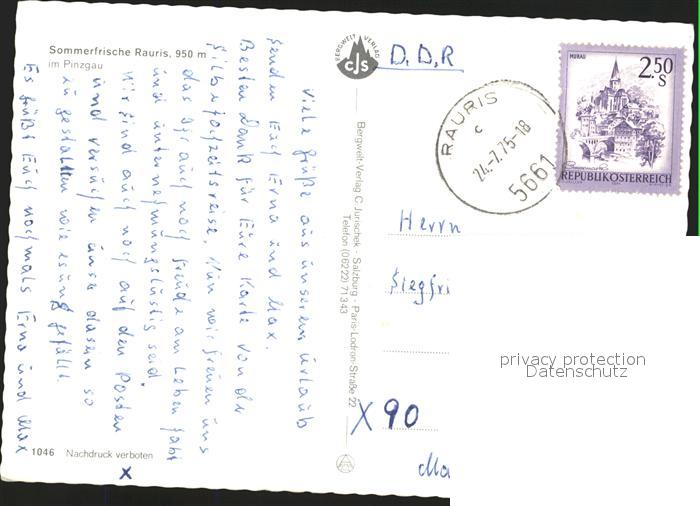 Sommerfrische Rauris, 950 m
im Pinzgau
Viele Grüße aus unserem Urlaub
senden Euch Erna und Max.
Besten Dank für Eure Karte von der
Silberhochzeitsreise. Nun wir freuen uns
das Ihr auch noch Freude am Leben habt
und unternehmungslustig seid.
Wir sind auch noch auf den Posten
und versuchen unser dasein so
zu gestalten wie es uns gefällt
Es grüßt Euch nochmals Erna und Max
1046 Nachdruck verboten
X
BERGWELT VERLAG
CJS
Bergwelt-Verlag C. Jurischek - Salzburg - Paris-Lodron-Straße 22
Telefon (06222) 71343
D.D.R
RAURIS
c
24.-7.75-18
5661
MURAU
2.50
S
REPUBLIK ÖSTERREICH
Herrn
Siegfri
X 90
Ma
privacy protection
Datenschutz